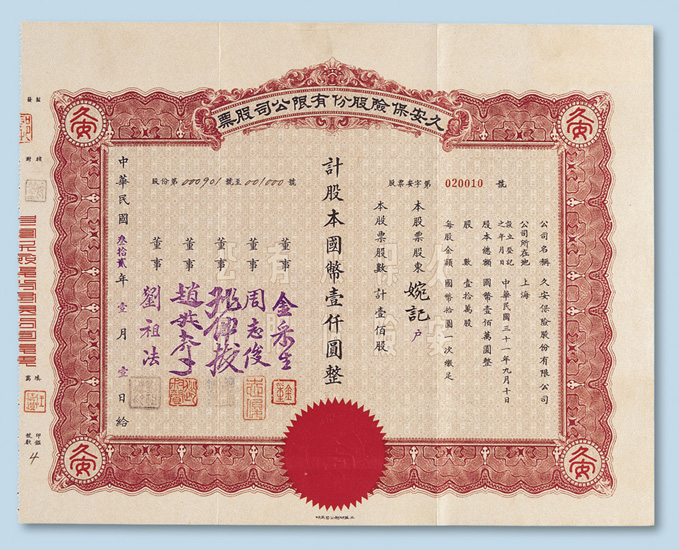 久安保險股份有限公司股票
久安
久安
股票安字第 020010 號
公司名稱 久安保險股份有限公司
公司所在地 上海
設立登記之年月日 中華民國三十一年九月十日
股本總額 國幣壹佰萬圓整
股數 壹拾萬股
每股金額 國幣拾圓一次繳足
本股票股東 婉記 戶
本股票股數 計壹佰股
計股本國幣壹仟圓整
股份第 000901 號至 001000 號
董事 金采生
董事 周志俊
董事
董事
董事 劉祖法
中華民國叁拾貳年壹月壹日給
久安
久安
4